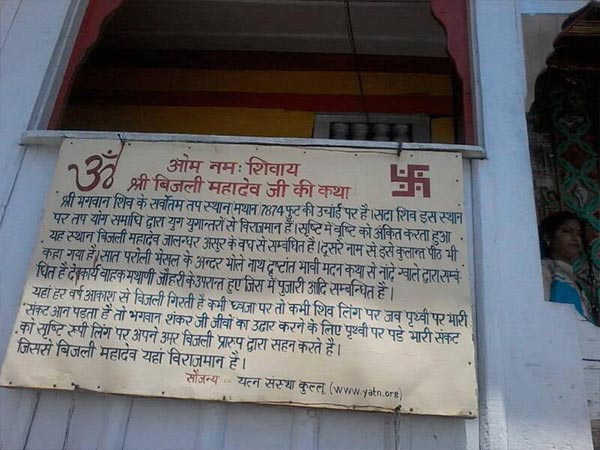 ॐ ओम नमः शिवाय
श्री बिजली महादेव जी की कथा
श्री भगवान शिव के सर्वोतम तप स्थान (मथान) 7874 फुट की उंचाई पर है। सदा शिव इस स्थान
पर तप योग समाधि द्वारा युग युगान्तरों से विराजमान हैं। सृष्टि में वृष्टि को अंकित करता हुआ
यह स्थान बिजली महादेव जालन्धर असुर के वध से सम्बधित है। दूसरे नाम से इसे कुलान्त पीठ भी
कहा गया है। सात परोली भेखल के अन्दर भोले नाथ दृष्टांत भावी मदन कथा से नांढे ग्वाले द्वारा सम्ब-
धित है देव कार्य वाहक मथाणी जौहरी के उपरान्त हुए जिरा में पुजारी आदि सम्बन्धित है।
यहां हर वर्ष आकाश से बिजली गिरती है कभी ध्वजा पर तो कभी शिव लिंग पर जब पृथ्वी पर भारी
संकट आन पड़ता है तो भगवान शंकर जी जीवों का उद्धार करने के लिए पृथ्वी पर पडे भारी संकट
को सृष्टि रूपी लिंग पर अपने अमर बिजली प्रारुप द्वारा सहन करते है।
जिससे बिजली महादेव यहां विराजमान है।
सौजन्य :- यत्न संस्था कुल्लू (www.yatn.org)